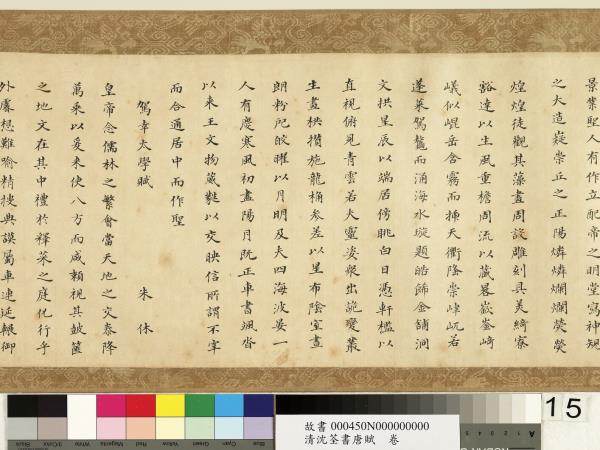 景業配人有作立配帝之明堂寫神規
之大造嶷崇丘之正陽燐燐爛爛熒熒
煌煌徒觀其藻畫周設雕刻具美綺寮
豁達以生風重檐周流以藏晷嶔崟崎
嶬似崐岳含霧而揷天衢隆崇崥屼若
蓬萊駕鼇而涌海水璇題皓飾金鋪洞
文拱星辰以端居傍眺白日憑軒檻以
直視俯見青雲若夫靈姿衆出詭變叢
生畫栱攢施龍桷參差以星布陰室晝
朗粉壁皎曜以月明及夫四海波晏一
人有慶寒風初盡陽月既正車書颯沓
以來王文物葳蕤以交映信所謂不宰
而合通居中而作聖
駕幸太學賦 朱休
皇帝念儒林之繁會當天地之交泰降
萬乘以爰來使八方而咸賴視其鼓篋
之地文在其中禮於釋菜之庭化行乎
外廣想難喻精擇典謨屬車連延輾御
15
故書 000450N000000000
清沈荃書唐賦 卷
Blue
Cyan
Green
Yellow
Red
Magenta
White
3/Color
Black